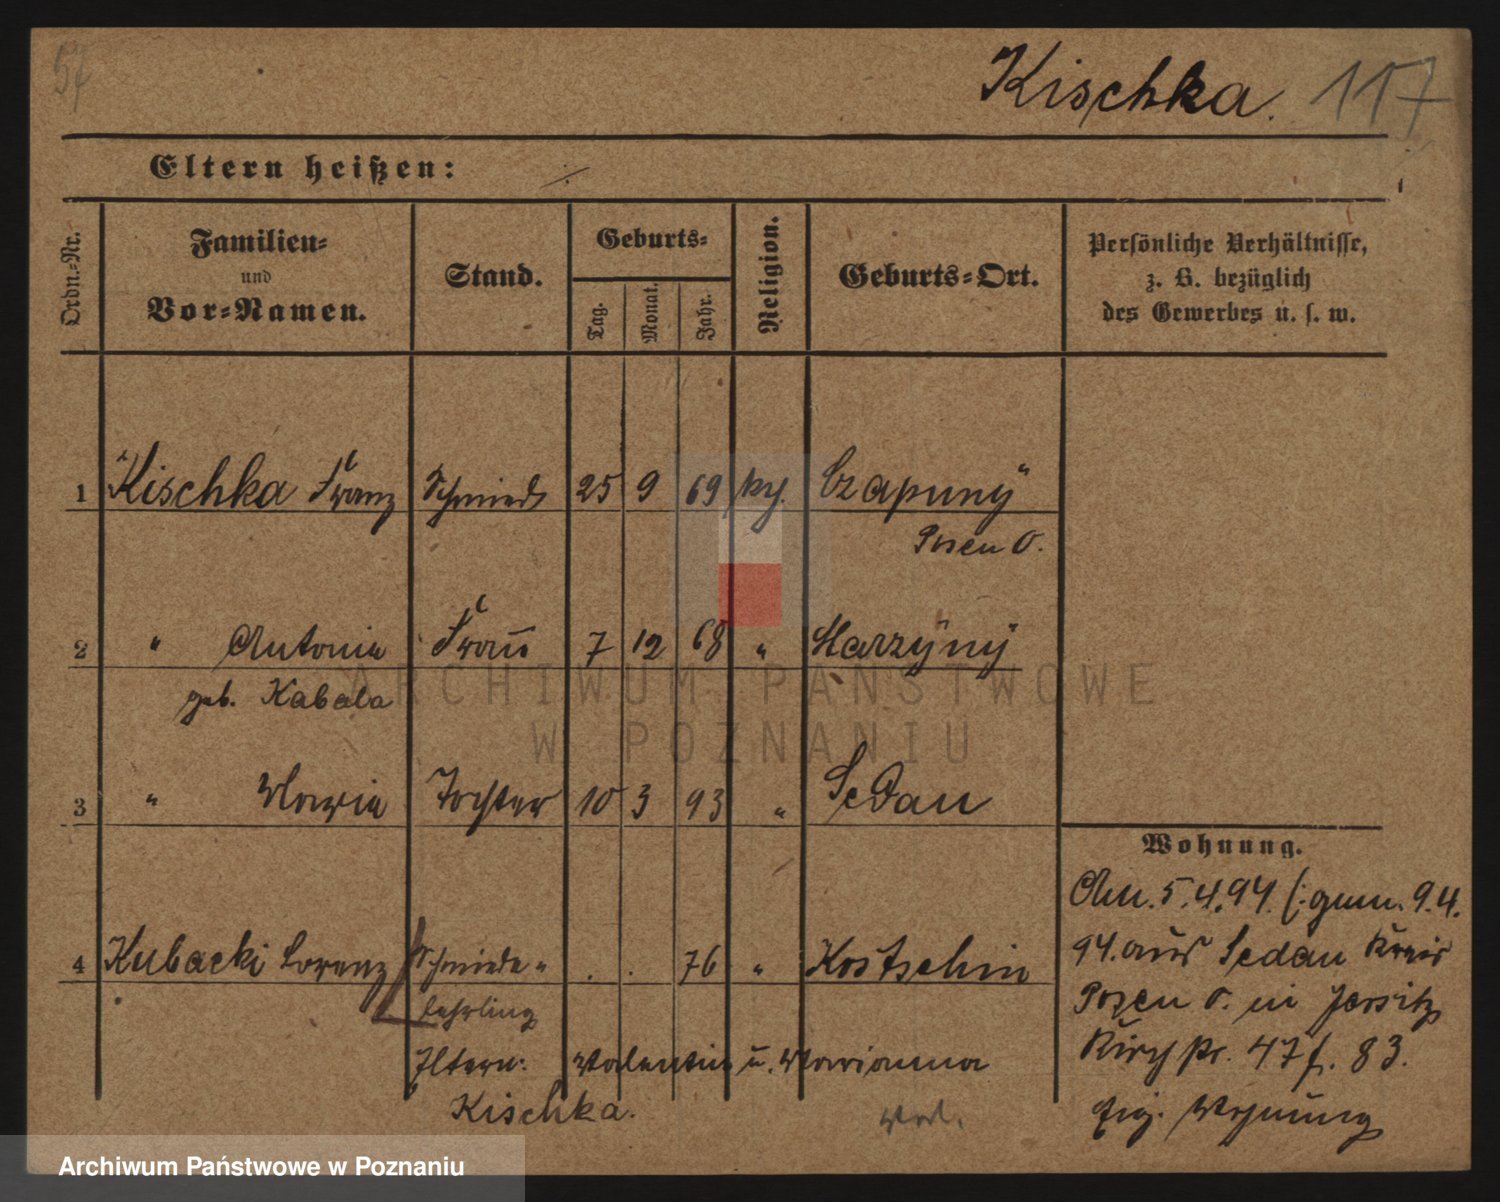 57
Kischka. 117
Eltern heißen: ./.
Ordn.-Nr.
Familien-
und
Vor-Namen.
Stand.
Geburts-
Tag.
Monat.
Jahr.
Religion.
Geburts-Ort.
Persönliche Verhältnisse,
z. B. bezüglich
des Gewerbes u. s. w.
1 Kischka Franz Schmied 25 9 69 kg. Czapury
Posen O.
2 " Antonie Frau 7 12 68 "
geb. Kabala
3 " Maria Tochter 10 3 93 " Sedan
Wohnung.
An. 5.4.94. (: gem. 9.4.
4 Kubacki Lorenz Schmiede- . . 76 " Kostschin
94. aus Sedan Kreis
lehrling
Posen O. in Jersitz
Eltern: Valentin u. Marianna
Kirchstr. 47 f. 83.
Kischka.
Eig. Wohnung
ARCHIWUM PAŃSTWOWE
W POZNANIU
Archiwum Państwowe w Poznaniu